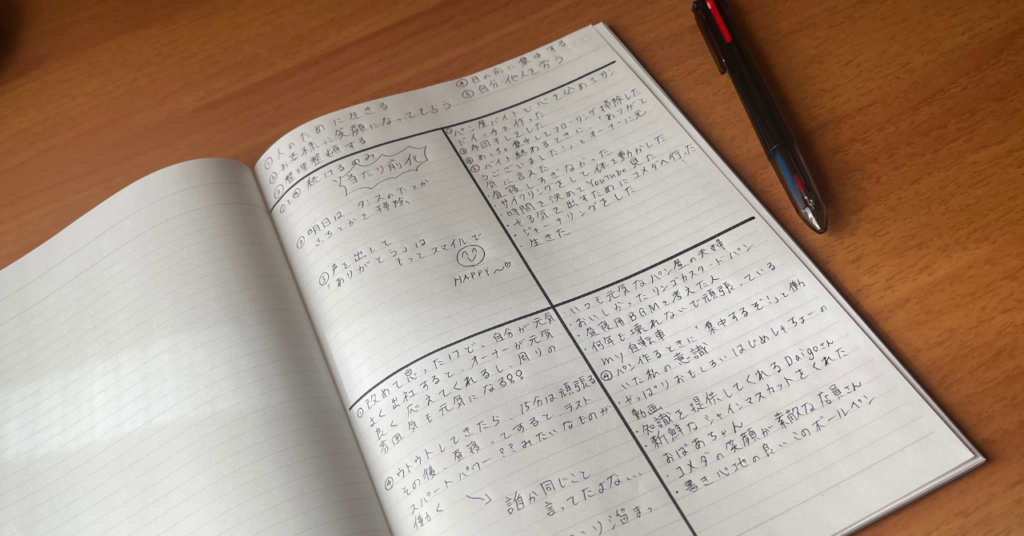 ①人のために生きる
②お客様に笑顔になってもらう
③整理整頓する
④目の前に集中する
⑤自分・他人を労う
続けるのみ
当たり前化
③明日は、タンスの
掃除
②声を出して
ありがとう」は
とってスマイルで
HAPPY〜
・パン屋バイトで心を込めてサン
ドイッチを作った
た」と言えた
昼寝しすぎなかった
サイクリングをして体を動かした
・時間を決めてYouTube見た
・やる気を出すためにコメダへ行った
・ジャーナリングをした
・生きた
①改めて思ったけで、自分が元気
良く出社すると、オーナーが元気
良く応えてくれるし、周りの
雰囲気も元気になる
④ウトウトしてきたら、15分は頑張る
その後、昼寝ってすると、ラスト
スパートパワー??みたいなものが
働く
誰か同じこと
言ってたよな…
・いつも元気なパン屋の夫婦
・おいしかったリンゴカスタードパン
・勉強用BGMを考えた人
・何年も壊れないで頑張っている
my自転車
④パン作るときに「集中するぞ!」と働
いた私の意識
・やっぱりおもしろいはひめしゃちょーの
動画
・知識を提供してくれるDaigoさん
・新鮮なシャインマスカットをくれた
おばあちゃん
・コメダの笑顔が素敵な店員さん
・書き心地の良いこのボールペン